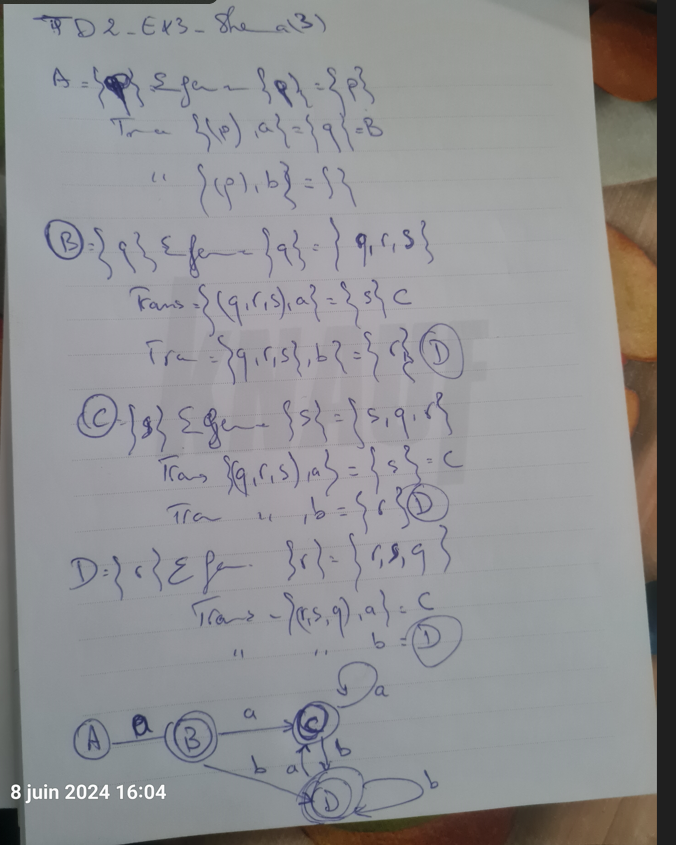 TD2-EX3-Shema(3)
A={p} Σ fer {p}={p}
Tran {(p),a}={q}=B
" {(p),b}={}
B={q} Σ fer {q}={q,r,s}
Trans={(q,r,s),a}={s} C
Tra={q,r,s},b}={r} D
C={s} Σ fer {s}={s,q,r}
Trans {(q,r,s),a}={s}=C
Tran " ,b={r} D
D={r} Σ fer {r}={r,s,q}
Trans={(r,s,q),a}=C
" " b=D
a
A a B a C
b a b
D b
8 juin 2024 16:04
KNAUF